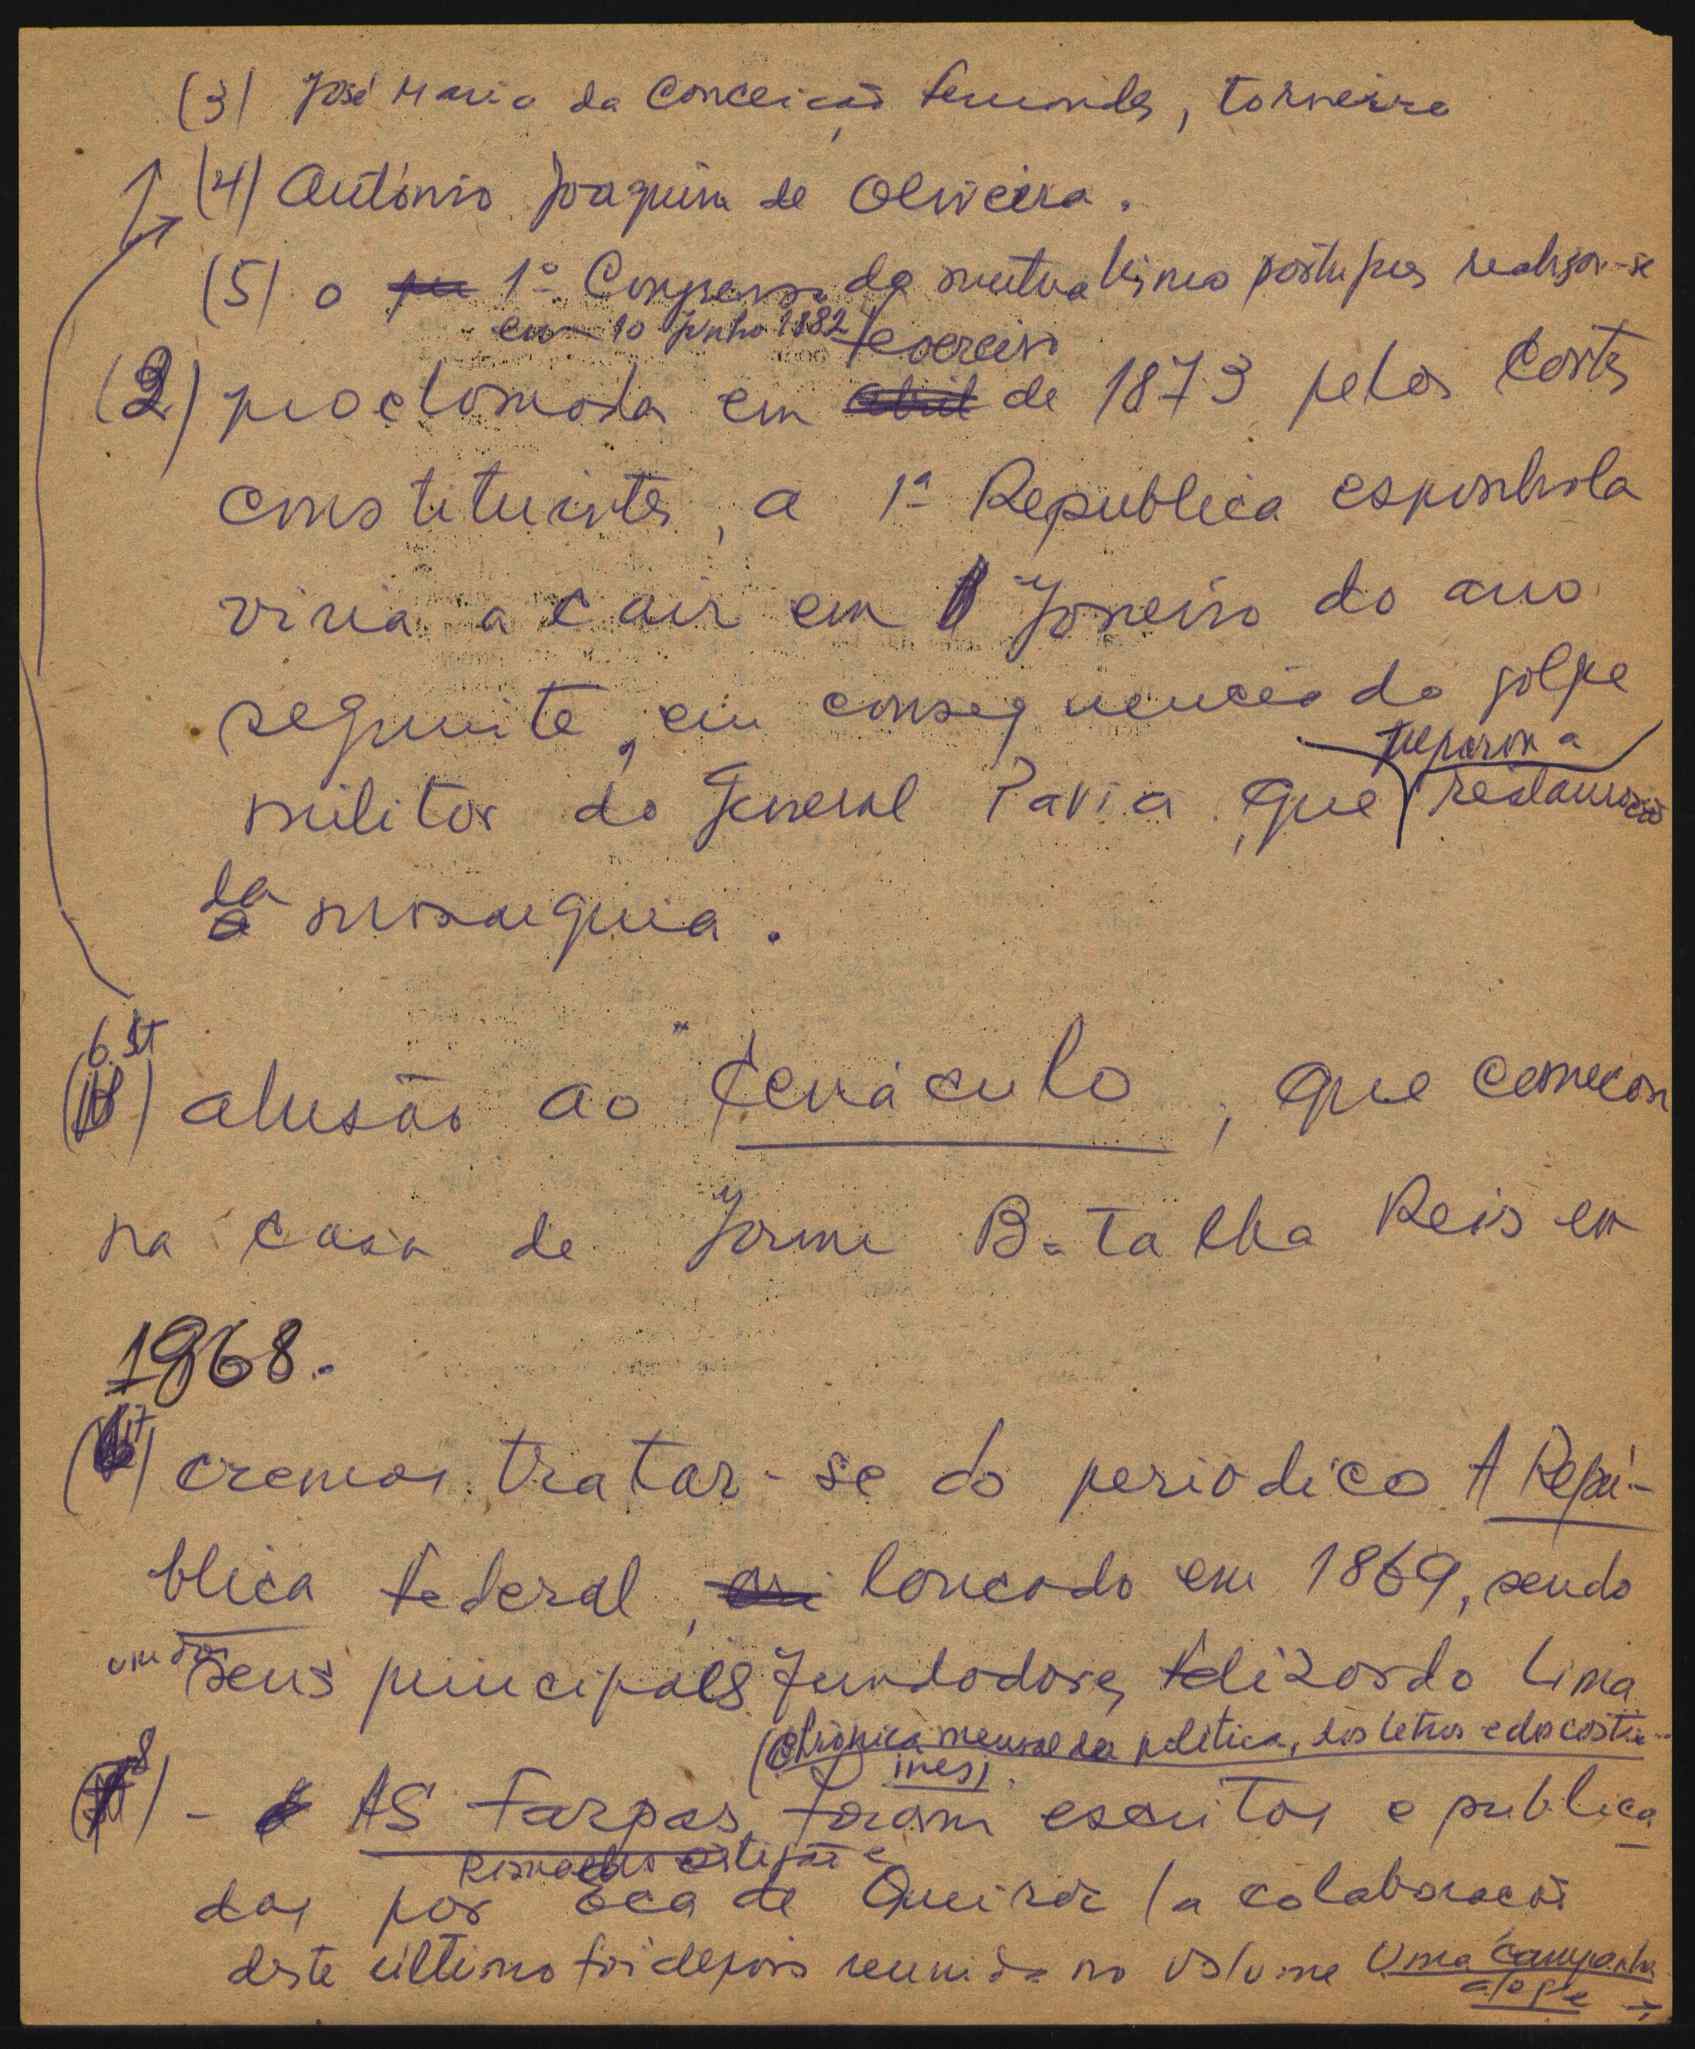 (3) José Maria da Conceição Fernandes, torneiro
(4) António Joaquim de Oliveira.
(5) o 1º Congresso do mutualismo português realizou-se
em 10 Junho 1882
fevereiro
(2) proclamada em abril de 1873 pelas Cortes
constituintes, a 1ª República espanhola
viria a cair em Janeiro do ano
seguinte, em consequência do golpe
preparou a
militar do General Pavia, que restauração
da
monarquia.
6
( ) alusão ao "Cenáculo, que começou
na casa de Jaime Batalha Reis em
1868.
(7) cremos tratar-se do periódico A Repú-
blica Federal, lançado em 1869, sendo
um dos
seus principais fundadores Felizardo Lima
(Chrónica mensal da política, das letras e dos costu-
mes)
(8) - As Farpas, foram escritas e publica
Ramalho Ortigão e
das por Eça de Queiroz (a colaboração
deste último foi depois reunida no volume Uma campanha
alegre →